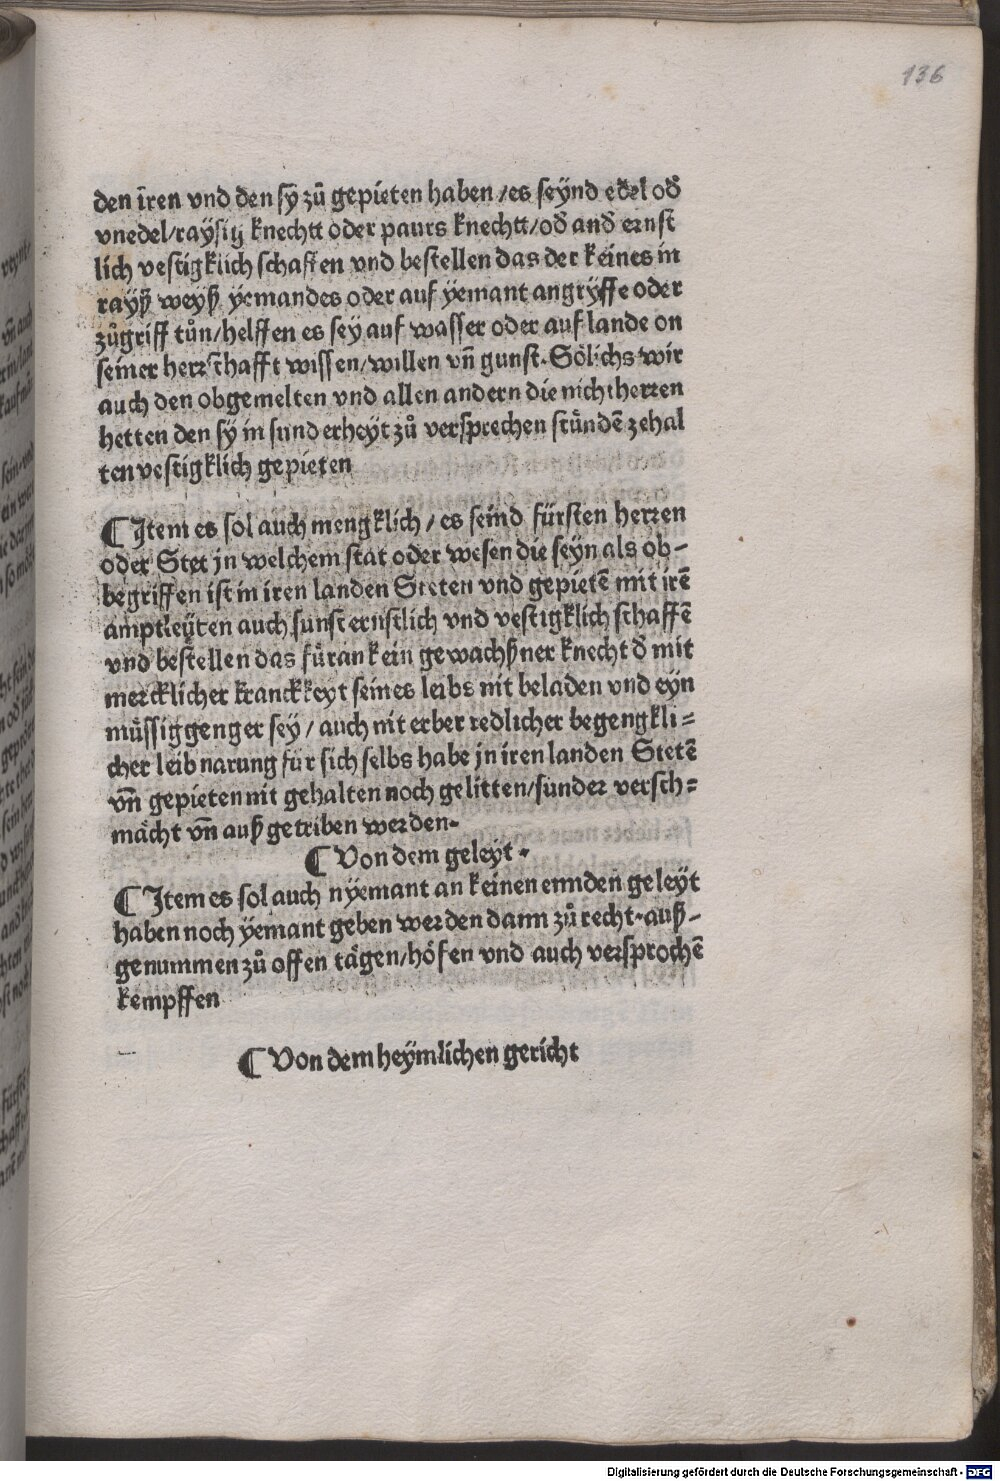 136
den īren vnd den sy zů gepieten haben / es seÿnd edel od̄
vnedel/raÿsig knechtt oder paurs knechtt/od̄ and̄ ernst
lich vestigklich schaffen vnd bestellen das der keines in
rayß weyß yemandes oder auf ÿemant angrÿffe oder
zůgriff tůn/helffen es sey auf wasser oder auf lande on
seiner herrschafft wissen/willen vn̄ gunst. Sölichs wir
auch den obgemelten vnd allen andern die nicht herren
hetten den sÿ in sunderheyt zů versprechen stůndē zehal
ten vestigklich gepieten
¶ Item es sol auch mengklich / es seind fürsten herren
oder Stet jn welchem stat oder wesen die seyn als ob-
begriffen ist in iren landen Steten vnd gepietē mit irē
amptleÿten auch sunst ernstlich vnd vestigklich schaffē
vnd bestellen das füran kein gewachßner knecht d̄ mit
mercklicher kranckkeyt seines leibs nit beladen vnd eyn
müssiggenger sey / auch nit erber redlicher begengkli=
cher leibnarung für sich selbs habe jn iren landen Stetē
vn̄ gepieten nit gehalten noch gelitten/sunder versch=
mächt vn̄ auß getriben werden.
¶ Von dem geleyt.
¶ Item es sol auch nyemant an keinen ennden geleyt
haben noch yemant geben werden dann zů recht. auß-
genummen zů offen tägen/höfen vnd auch versprochē
kempffen
¶ Von dem heÿmlichen gericht
Digitalisierung gefördert durch die Deutsche Forschungsgemeinschaft - DFG